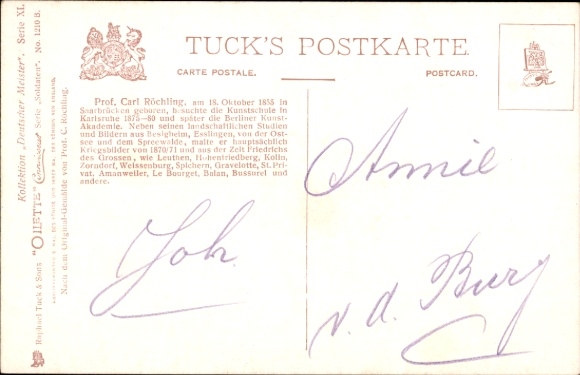 TUCK'S POSTKARTE
CARTE POSTALE.
POSTCARD.
Prof. Carl Röchling, am 18. Oktober 1855 in
Saarbrücken geboren, besuchte die Kunstschule in
Karlsruhe 1875–80 und später die Berliner Kunst-
Akademie. Neben seinen landschaftlichen Studien
und Bildern aus Besigheim, Esslingen, von der Ost-
see und dem Spreewalde, malte er hauptsächlich
Kriegsbilder von 1870/71 und aus der Zeit Friedrichs
des Grossen, wie Leuthen, Hohenfriedberg, Kolin,
Zorndorf, Weissenburg, Spichern, Gravelotte, St. Pri-
vat, Amanweiler, Le Bourget, Balan, Bussurel und
andere.
Annie
Joh.
v. d. Burg
Kollektion „Deutscher Meister". Serie XI.
Raphael Tuck & Sons "OILETTE" Serie „Soldaten". No. 1210 B.
Nach dem Original-Gemälde von Prof. C. Röchling.